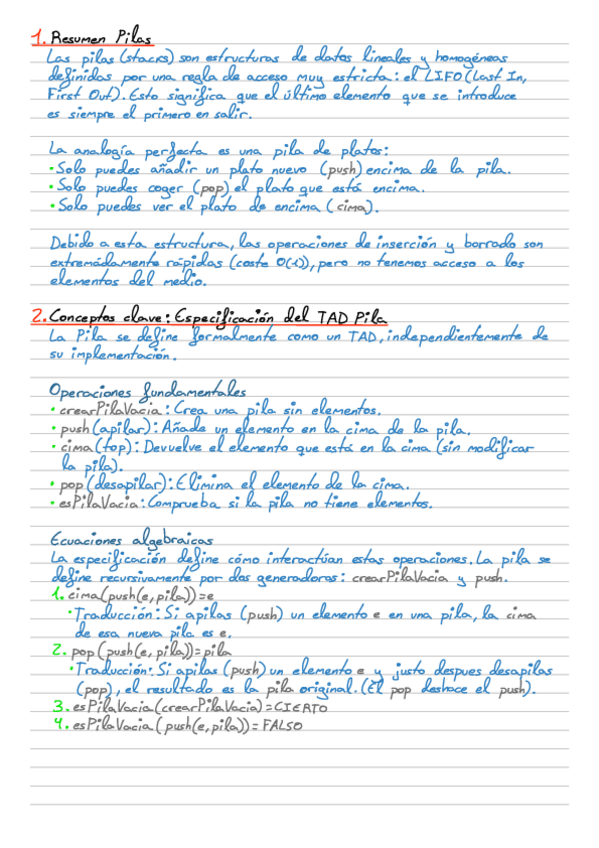 1. Resumen Pilas
Las pilas (stacks) son estructuras de datos lineales y homogéneas
definidas por una regla de acceso muy estricta: el LIFO (Last In,
First Out). Esto significa que el último elemento que se introduce
es siempre el primero en salir.
La analogía perfecta es una pila de platos:
• Solo puedes añadir un plato nuevo (push) encima de la pila.
• Solo puedes coger (pop) el plato que está encima.
• Solo puedes ver el plato de encima (cima).
Debido a esta estructura, las operaciones de inserción y borrado son
extremádamente rápidas (coste O(1)), pero no tenemos acceso a los
elementos del medio.
2. Conceptos clave: Especificación del TAD Pila
La Pila se define formalmente como un TAD, independientemente de
su implementación.
Operaciones fundamentales
• crearPilaVacia: Crea una pila sin elementos.
• push (apilar): Añade un elemento en la cima de la pila.
• cima (top): Devuelve el elemento que está en la cima (sin modificar
la pila).
• pop (desapilar): Elimina el elemento de la cima.
• esPilaVacia: Comprueba si la pila no tiene elementos.
Ecuaciones algebraicas
La especificación define cómo interactúan estas operaciones. La pila se
define recursivamente por dos generadoras: crearPilaVacia y push.
1. cima(push(e, pila)) = e
• Traducción: Si apilas (push) un elemento e en una pila, la cima
de esa nueva pila es e.
2. pop (push(e, pila)) = pila
• Traducción: Si apilas (push) un elemento e y justo despues desapilas
(pop), el resultado es la pila original. (El pop deshace el push).
3. esPilaVacia (crearPilaVacia) = CIERTO
4. esPilaVacia (push(e, pila)) = FALSO